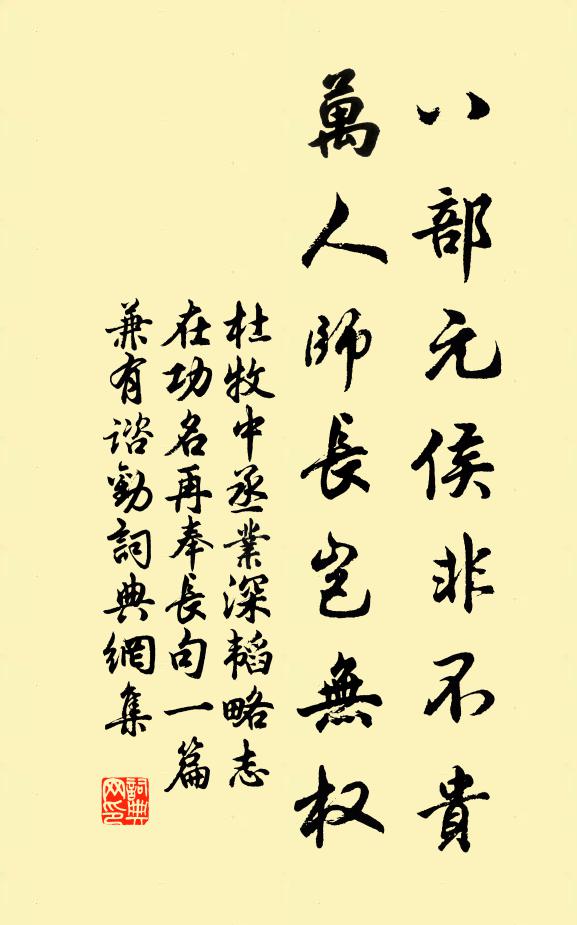 八部元侯非不貴
萬人師長豈無权
杜牧中丞業深韬略志
在功名再奉長句一篇
兼有諮勸詞典網集
詞典
网印